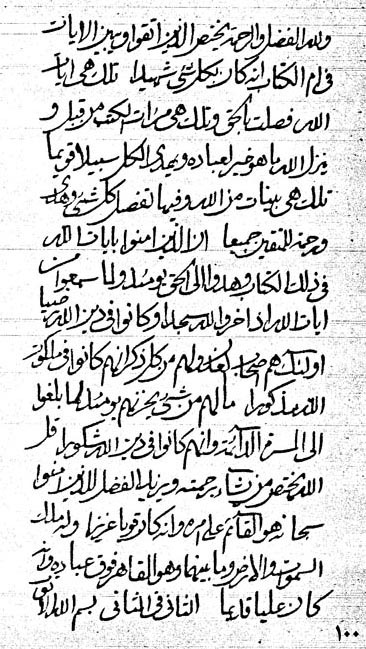 ولله الفضل والرحمة يختص الذين اتقوا وبين الايات
في ام الكتاب انه كان بكل شئ شهيدا تلك هي ايات
الله فصلت بالحق وتلك هي من ايات الكتب من قبل و
ينزل الله ما هو خير لعباده ويهدي الكل سبيلا قويما
تلك هي بينات من الله وفيها تفصيل كل شئ وهدى
ورحمة للمتقين جميعا ان الذين امنوا بايات الله
في ذلك الكتاب وهدوا الى الحق يومئذ ولما سمعوا من
ايات الله اذا خروا لله سجدا وكانوا في دين الله
اولئك هم اصحاب ولهم من كل ذكر انهم كانوا في
الله مذكورا ما لهم من شئ يحزنهم يومئذ لما بلغوا
الى وانهم كانوا في دين الله شكورا قل
الله يختص من يشاء برحمته ويزيد الفضل للذين امنوا
سبحانه هو القائم على امره وانه كان قويا عزيزا وله ملك
السموات والارض وما بينهما وهو القاهر فوق عباده وانه
كان عليا قديما الثاني في الثاني بسم الله
١٠٠